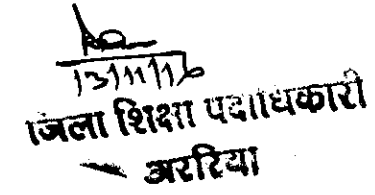 13/11/16
जिला शिक्षा पदाधिकारी
अररिया